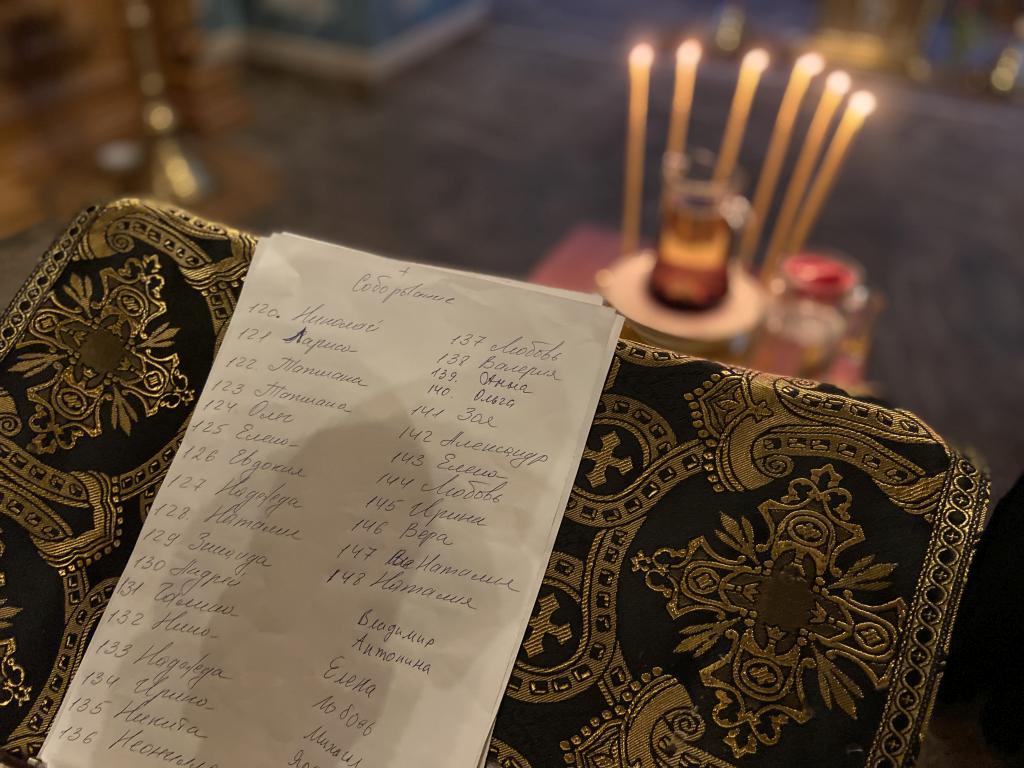 Соборование
120. Николай
121 Лариса
122. Татиана
123 Татиана
124 Олег
125 Елена
126 Евдокия
127 Надежда
128. Наталия
129 Зинаида
130 Андрей
131 Галина
132 Нина
133 Надежда
134 Ирина
135 Никита
136
137 Любовь
138 Валерия
139. Анна
140. Ольга
141 Зоя
142 Александр
143 Елена
144 Любовь
145 Ирина
146 Вера
147 Наталия
148 Наталия
Владимир
Антонина
Елена
Любовь
Михаил